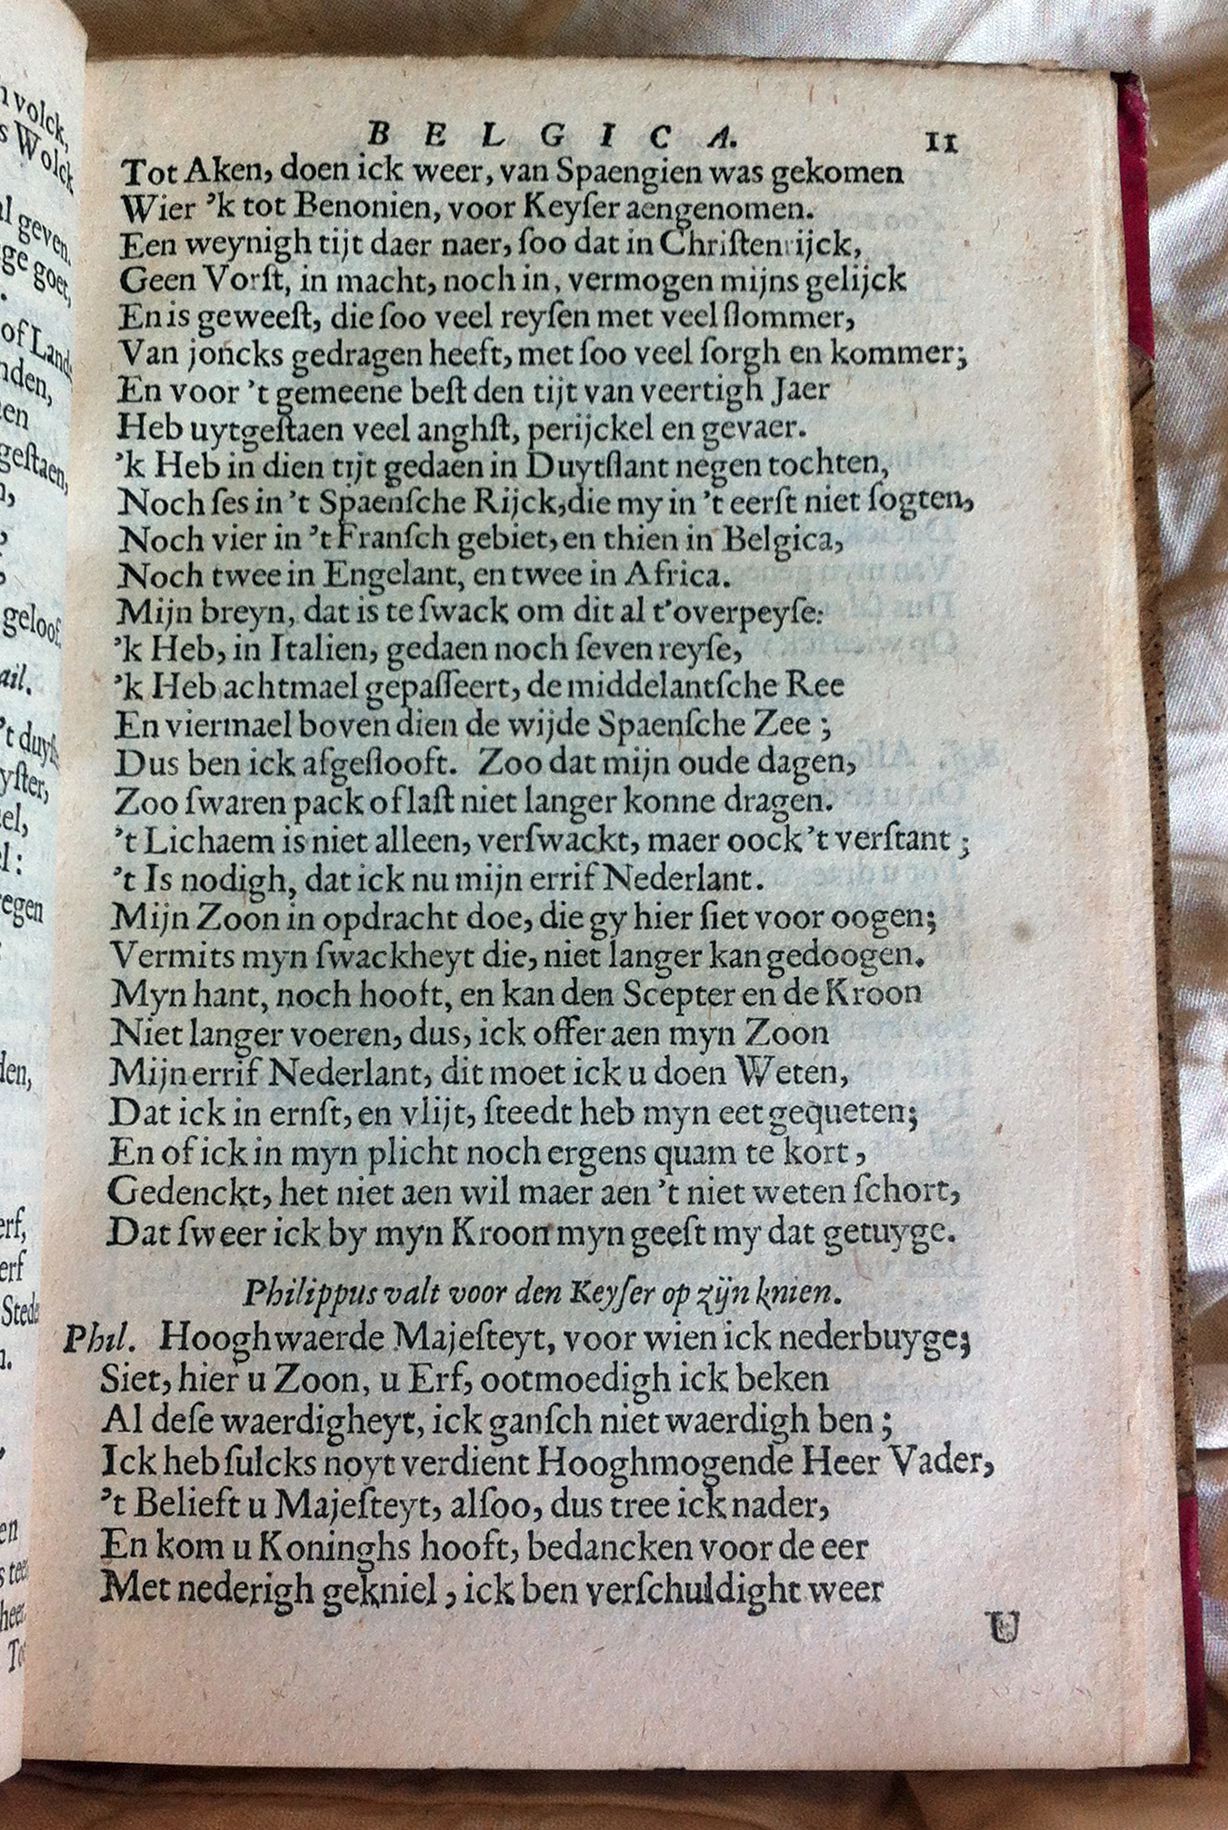 BELGICA. 11
Tot Aken, doen ick weer, van Spaengien was gekomen
Wier 'k tot Benonien, voor Keyſer aengenomen.
Een weynigh tijt daer naer, ſoo dat in Chriſtenrijck,
Geen Vorſt, in macht, noch in, vermogen mijns gelijck
En is geweeſt, die ſoo veel reyſen met veel ſlommer,
Van joncks gedragen heeft, met ſoo veel ſorgh en kommer;
En voor 't gemeene beſt den tijt van veertigh Jaer
Heb uytgeſtaen veel anghſt, perijckel en gevaer.
'k Heb in dien tijt gedaen in Duytſlant negen tochten,
Noch ſes in 't Spaenſche Rijck, die my in 't eerſt niet ſogten,
Noch vier in 't Franſch gebiet, en thien in Belgica,
Noch twee in Engelant, en twee in Africa.
Mijn breyn, dat is te ſwack om dit al t'overpeyſe:
'k Heb, in Italien, gedaen noch ſeven reyſe,
'k Heb achtmael gepaſſeert, de middelantſche Ree
En viermael boven dien de wijde Spaenſche Zee;
Dus ben ick afgeſlooft. Zoo dat mijn oude dagen,
Zoo ſwaren pack of laſt niet langer konne dragen.
't Lichaem is niet alleen, verſwackt, maer oock 't verſtant;
't Is nodigh, dat ick nu mijn errif Nederlant.
Mijn Zoon in opdracht doe, die gy hier ſiet voor oogen;
Vermits myn ſwackheyt die, niet langer kan gedoogen.
Myn hant, noch hooft, en kan den Scepter en de Kroon
Niet langer voeren, dus, ick offer aen myn Zoon
Mijn errif Nederlant, dit moet ick u doen Weten,
Dat ick in ernſt, en vlijt, ſteedt heb myn eet gequeten;
En of ick in myn plicht noch ergens quam te kort,
Gedenckt, het niet aen wil maer aen 't niet weten ſchort,
Dat ſweer ick by myn Kroon myn geeſt my dat getuyge.
Philippus valt voor den Keyſer op zijn knien.
Phil. Hooghwaerde Majeſteyt, voor wien ick nederbuyge;
Siet, hier u Zoon, u Erf, ootmoedigh ick beken
Al deſe waerdigheyt, ick ganſch niet waerdigh ben;
Ick heb ſulcks noyt verdient Hooghmogende Heer Vader,
't Belieft u Majeſteyt, alſoo, dus tree ick nader,
En kom u Koninghs hooft, bedancken voor de eer
Met nederigh gekniel, ick ben verſchuldight weer
U